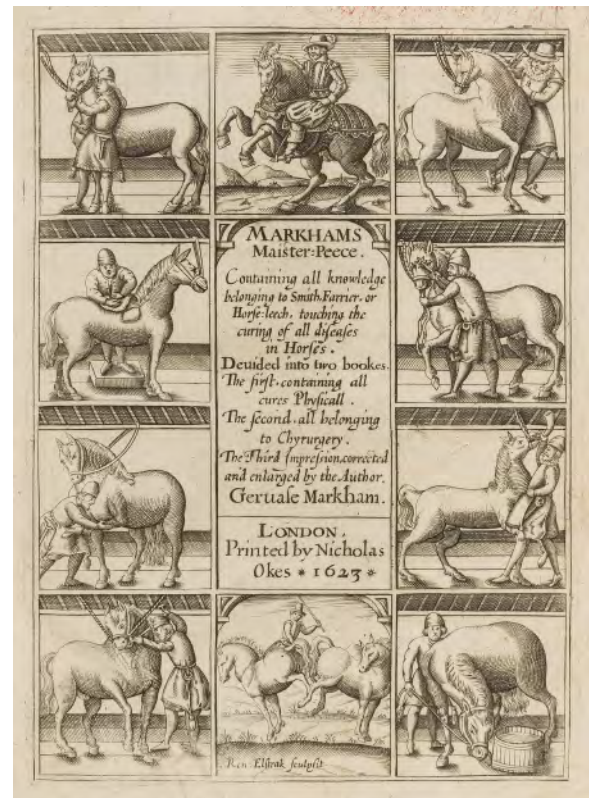 MARKHAMS
Maister=Peece.
Containing all knowledge
belonging to Smith, Farrier, or
Horſe=leech, touching the
curing of all diſeaſes
in Horſes.
Deuided into two bookes.
The firſt, containing all
cures Phyſicall.
The ſecond, all belonging
to Chyrurgery.
The Third Impreſsion, corrected
and enlarged by the Author,
Geruaſe Markham.
LONDON,
Printed by Nicholas
Okes * 1623 *
Ren Elſtrak ſculpſit